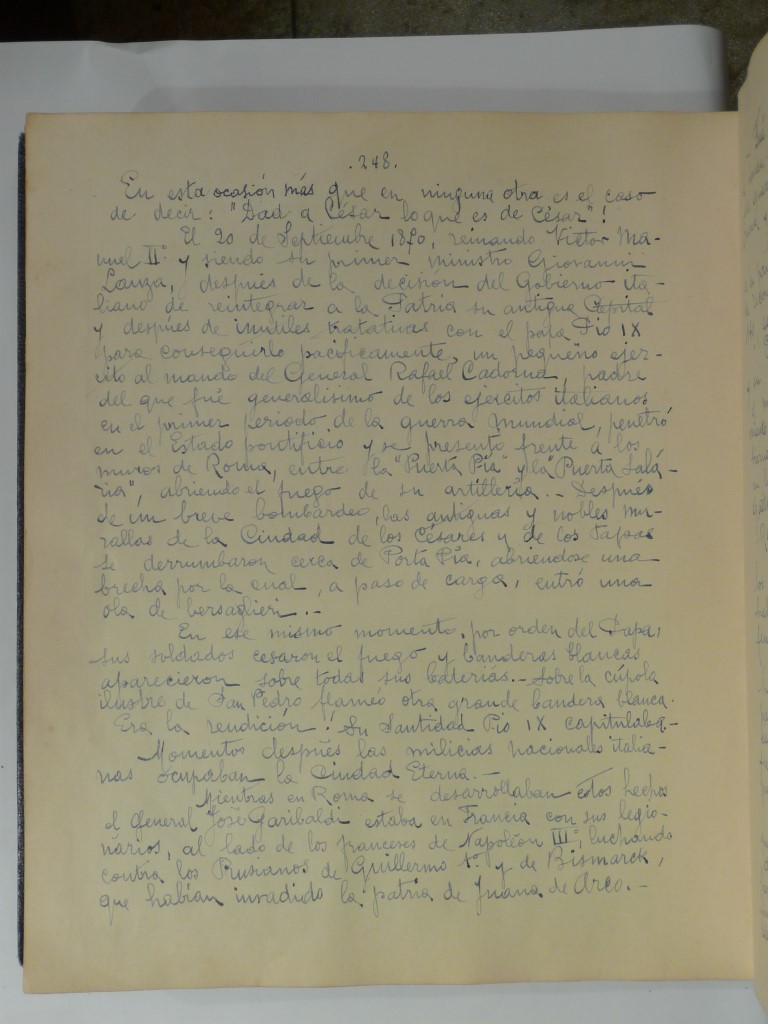 .248.
En esta ocasión más que en ninguna otra es el caso
de decir: "Dad a César lo que es de César"!
El 20 de Septiembre 1870, reinando Victor Ma-
nuel II° y siendo su primer ministro Giovanni
Lanza, después de la decisión del Gobierno ita-
liano de reintegrar a la Patria su antigua Capital
y después de inutiles tratativas con el papa Pio IX
para conseguirlo pacificamente, un pequeño ejer-
cito al mando del General Rafael Cadorna, padre
del que fué generalisimo de los ejércitos italianos
en el primer periodo de la guerra mundial, penetró
en el Estado pontificio y se presentó frente a los
muros de Roma, entre la "Puerta Pia" y la "Puerta Salá-
ria", abriendo el fuego de su artilleria.- Después
de un breve bombardeo, las antiguas y nobles mu-
rallas de la Ciudad de los Césares y de los Papas
se derrumbaron cerca de Porta Pia, abriendose una
brecha por la cual, a paso de carga, entró una
ola de bersaglieri.-
En ese mismo momento, por orden del Papa,
sus soldados cesaron el fuego y banderas blancas
aparecieron sobre todas sus baterias.- Sobre la cúpola
ilustre de San Pedro flameó otra grande bandera blanca.
Era la rendición! Su Santidad Pio IX capitulaba.-
Momentos después las milicias nacionales italia-
nas ocupaban la Ciudad Eterna.-
Mientras en Roma se desarrollaban estos hechos
el General José Garibaldi estaba en Francia con sus legio-
nários, al lado de los franceses de Napoléon III°, luchando
contra los Prusianos de Guillermo 1° y de Bismarck,
que habían invadido la patria de Juana de Arco.-